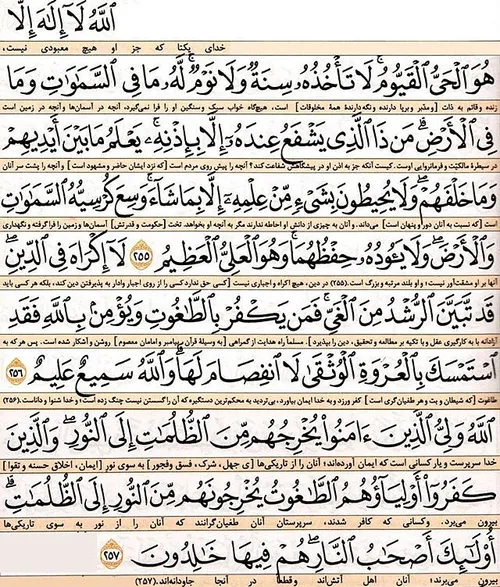 ٱللَّهُ لَآ إِلَٰهَ إِلَّا
خدای یکتا که جز او هیچ معبودی نیست،
هُوَ ٱلْحَىُّ ٱلْقَيُّومُ ۚ لَا تَأْخُذُهُۥ سِنَةٌ وَلَا نَوْمٌ ۚ لَّهُۥ مَا فِى ٱلسَّمَٰوَٰتِ وَمَا
زنده و قائم به ذات [و مدبّر و برپا دارنده و نگه دارندهٔ همهٔ مخلوقات] است، هیچ‌گاه خواب سبک و سنگین او را فرا نمی‌گیرد، آنچه در آسمان‌ها و آنچه در زمین است
فِى ٱلْأَرْضِ ۗ مَن ذَا ٱلَّذِى يَشْفَعُ عِندَهُۥٓ إِلَّا بِإِذْنِهِۦ ۚ يَعْلَمُ مَا بَيْنَ أَيْدِيهِمْ
در سیطرهٔ مالکیّت و فرمانروایی اوست. کیست آنکه جز به اذن او در پیشگاهش شفاعت کند؟ آنچه را پیش روی مردم است [که نزد ایشان حاضر و مشهود است] و آنچه را پشت سر آنان
وَمَا خَلْفَهُمْ ۖ وَلَا يُحِيطُونَ بِشَىْءٍ مِّنْ عِلْمِهِۦٓ إِلَّا بِمَا شَآءَ ۚ وَسِعَ كُرْسِيُّهُ ٱلسَّمَٰوَٰتِ
است [که نسبت به آنان دور و پنهان است] می‌داند. و آنان به چیزی از دانش او احاطه ندارند مگر به آنچه او بخواهد. تخت [حکومت و قدرتش] آسمان‌ها و زمین را فرا گرفته و نگهداری
وَٱلْأَرْضَ ۖ وَلَا يَـُٔودُهُۥ حِفْظُهُمَا ۚ وَهُوَ ٱلْعَلِىُّ ٱلْعَظِيمُ ۝٢٥٥ لَآ إِكْرَاهَ فِى ٱلدِّينِ ۖ
آنها بر او مشقّت‌آور نیست؛ و او بلند مرتبه و بزرگ است. (۲۵۵) در دین، هیچ اکراه و اجباری نیست [کسی حق ندارد کسی را از روی اجبار وادار به پذیرفتن دین کند، بلکه هر کسی باید
قَد تَّبَيَّنَ ٱلرُّشْدُ مِنَ ٱلْغَىِّ ۚ فَمَن يَكْفُرْ بِٱلطَّٰغُوتِ وَيُؤْمِنۢ بِٱللَّهِ فَقَدِ
آزادانه با به کارگیری عقل و با تکیه بر مطالعه و تحقیق، دین را بپذیرد]. مسلماً راه هدایت از گمراهی [به وسیلهٔ قرآن، پیامبر و امامان معصوم] روشن و آشکار شده است. پس هر که به
ٱسْتَمْسَكَ بِٱلْعُرْوَةِ ٱلْوُثْقَىٰ لَا ٱنفِصَامَ لَهَا ۗ وَٱللَّهُ سَمِيعٌ عَلِيمٌ ۝٢٥٦
طاغوت [که شیطان و بت و هر طغیان‌گری است] کفر ورزد و به خدا ایمان بیاورد، بی‌تردید به محکم‌ترین دستگیره که آن را گسستن نیست چنگ زده است؛ و خدا شنوا و داناست. (۲۵۶)
ٱللَّهُ وَلِىُّ ٱلَّذِينَ ءَامَنُوا۟ يُخْرِجُهُم مِّنَ ٱلظُّلُمَٰتِ إِلَى ٱلنُّورِ ۖ وَٱلَّذِينَ
خدا سرپرست و یار کسانی است که ایمان آورده‌اند؛ آنان را از تاریکی‌ها [ی جهل، شرک، فسق و فجور] به سوی نور [ایمان، اخلاق حسنه و تقوا]
كَفَرُوٓا۟ أَوْلِيَآؤُهُمُ ٱلطَّٰغُوتُ يُخْرِجُونَهُم مِّنَ ٱلنُّورِ إِلَى ٱلظُّلُمَٰتِ ۗ
بیرون می‌برد. و کسانی که کافر شدند، سرپرستان آنان طغیان‌گرانند که آنان را از نور به سوی تاریکی‌ها
أُو۟لَٰٓئِكَ أَصْحَٰبُ ٱلنَّارِ ۖ هُمْ فِيهَا خَٰلِدُونَ ۝٢٥٧
بیرون می‌برند؛ آنان اهل آتش‌اند و قطعاً در آنجا جاودانه‌اند. (۲۵۷)